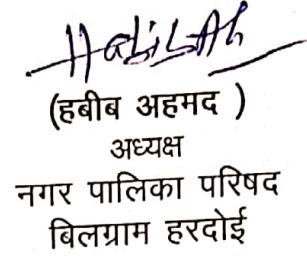 (हबीब अहमद )
अध्यक्ष
नगर पालिका परिषद
बिलग्राम हरदोई